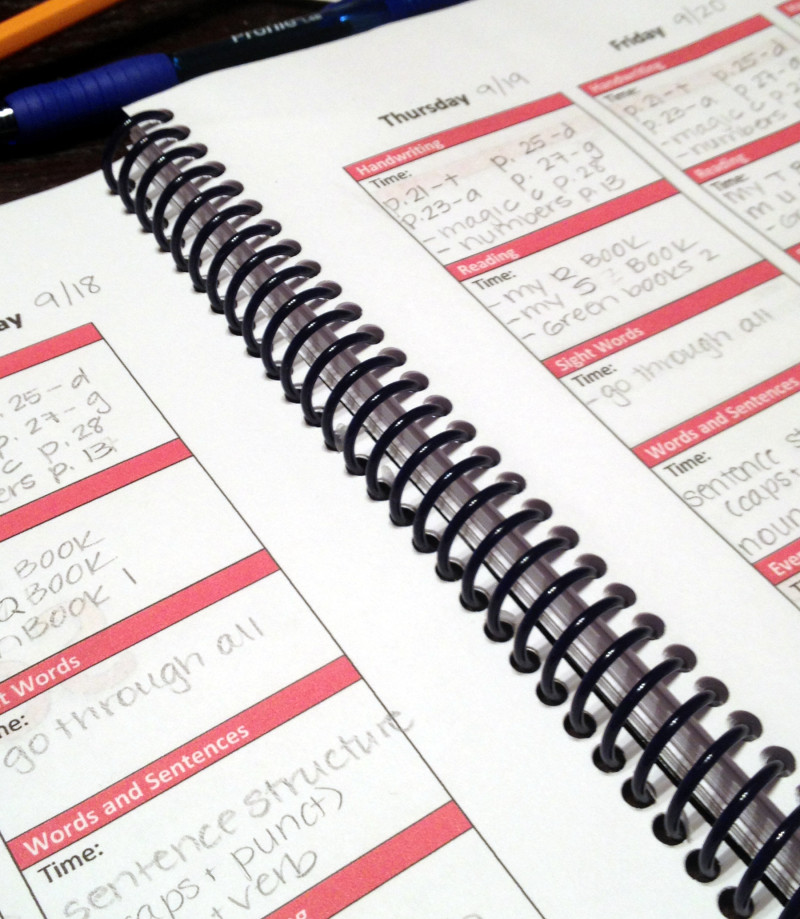 Profile
ay 9/18
. 25-d
p. 27-g
c p. 28
ers p. 13
BOOK
Q BOOK
n BOOK 1
t Words
me:
go through all
Words and Sentences
Time:
sentence structure
caps + punct)
+ verb
ng
Thursday 9/19
Handwriting
Time:
p. 21-t p. 25-d
p. 23-a p. 27-g
- magic c p. 28
- numbers p. 13
Reading
Time:
- my BOOK
- my 5 BOOK
- Green books 2
Sight Words
Time:
- go through all
Words and Sentences
Time:
sentence s
(caps +
noun
Eve
Friday 9/20
Handwriting
Time:
p. 21-t p. 25-d
p. 23-a p. 27-g
- magic c p. 2
- numbers
Reading
Time:
my
m u